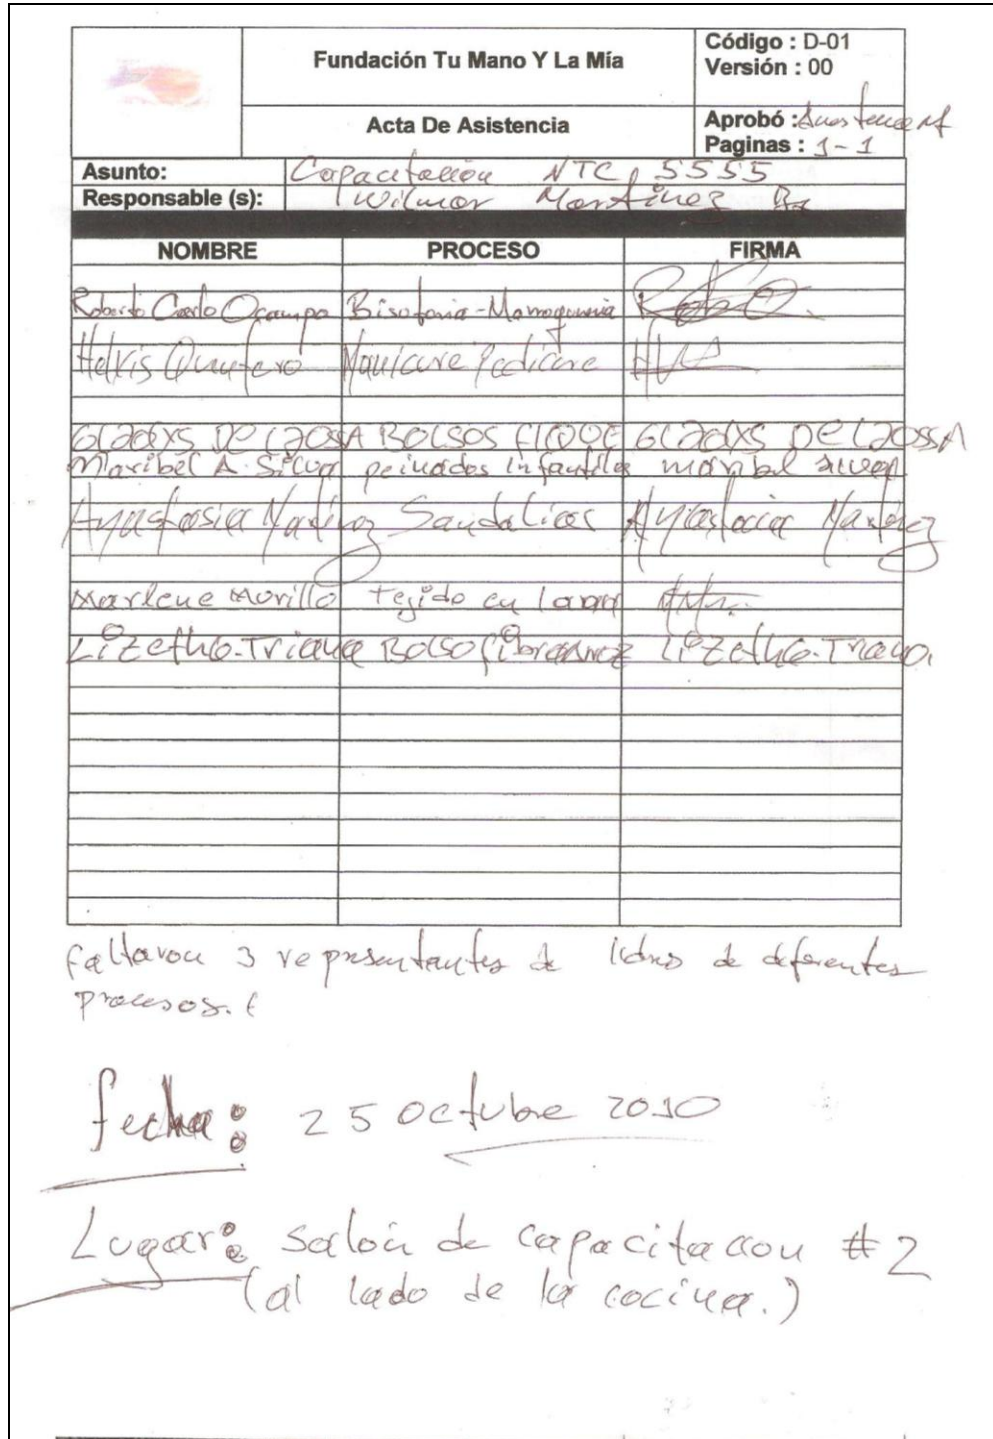 Fundación Tu Mano Y La Mía
Código : D-01
Versión : 00
Acta De Asistencia
Aprobó :
Paginas : 1 - 1
Asunto: Capacitación NTC 5555
Responsable (s): Wilmar Martinez
NOMBRE PROCESO FIRMA
Roberto Carlo Ocampo Bisuteria -
Helkis Quintero Manicure Pedicure
GLADYS DE LAOSSA BOLSOS FIQUE GLADYS DE LAOSSA
Maribel A. Silva peinados infantiles maribel silva
Anastasia Martinez Sandalias Anastacia Martinez
Marlene Morillo tejido en lana
Lizeth G. Triana Bolso Lizeth G. Triana
faltaron 3 representantes de lideres de diferentes
procesos.
fecha: 25 octubre 2010
Lugar: salón de capacitacion #2
(al lado de la cocina.)